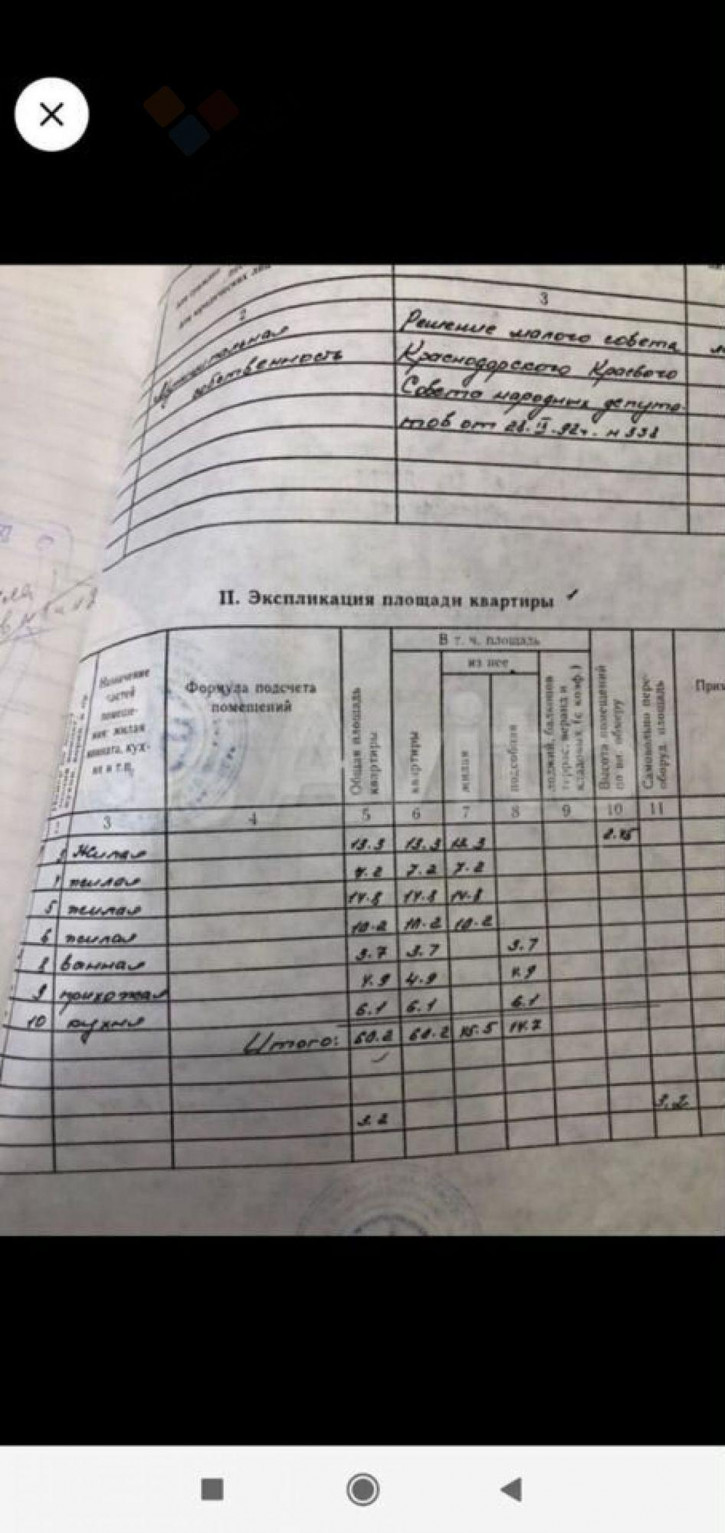 2
3
Муниципальная
собственность
Решение малого совета
Краснодарского Краевого
Совета народных депута-
тов от 28.II.92г. н 338
II. Экспликация площади квартиры 1
Назначение частей помеще- ния: жилая комната, кух- ня и т.п.
Формула подсчета помещений
Общая площадь квартиры
В т. ч. площадь
квартиры
из нее
жилая
подсобная
лоджий, балконов террас, веранд и кладовых (с коэф.)
Высота помещений по вн. обмеру
Самовольно пере- оборуд. площадь
Прим
3 4 5 6 7 8 9 10 11
Жилая 13.3 13.3 13.3 2.75
жилая 7.2 7.2 7.2
5 жилая 14.8 14.8 14.8
6 жилая 10.2 10.2 10.2
8 ванная 3.7 3.7 3.7
9 прихожая 4.9 4.9 4.9
10 кухня 6.1 6.1 6.1
Итого: 60.2 60.2 45.5 14.7
3.2
3.2